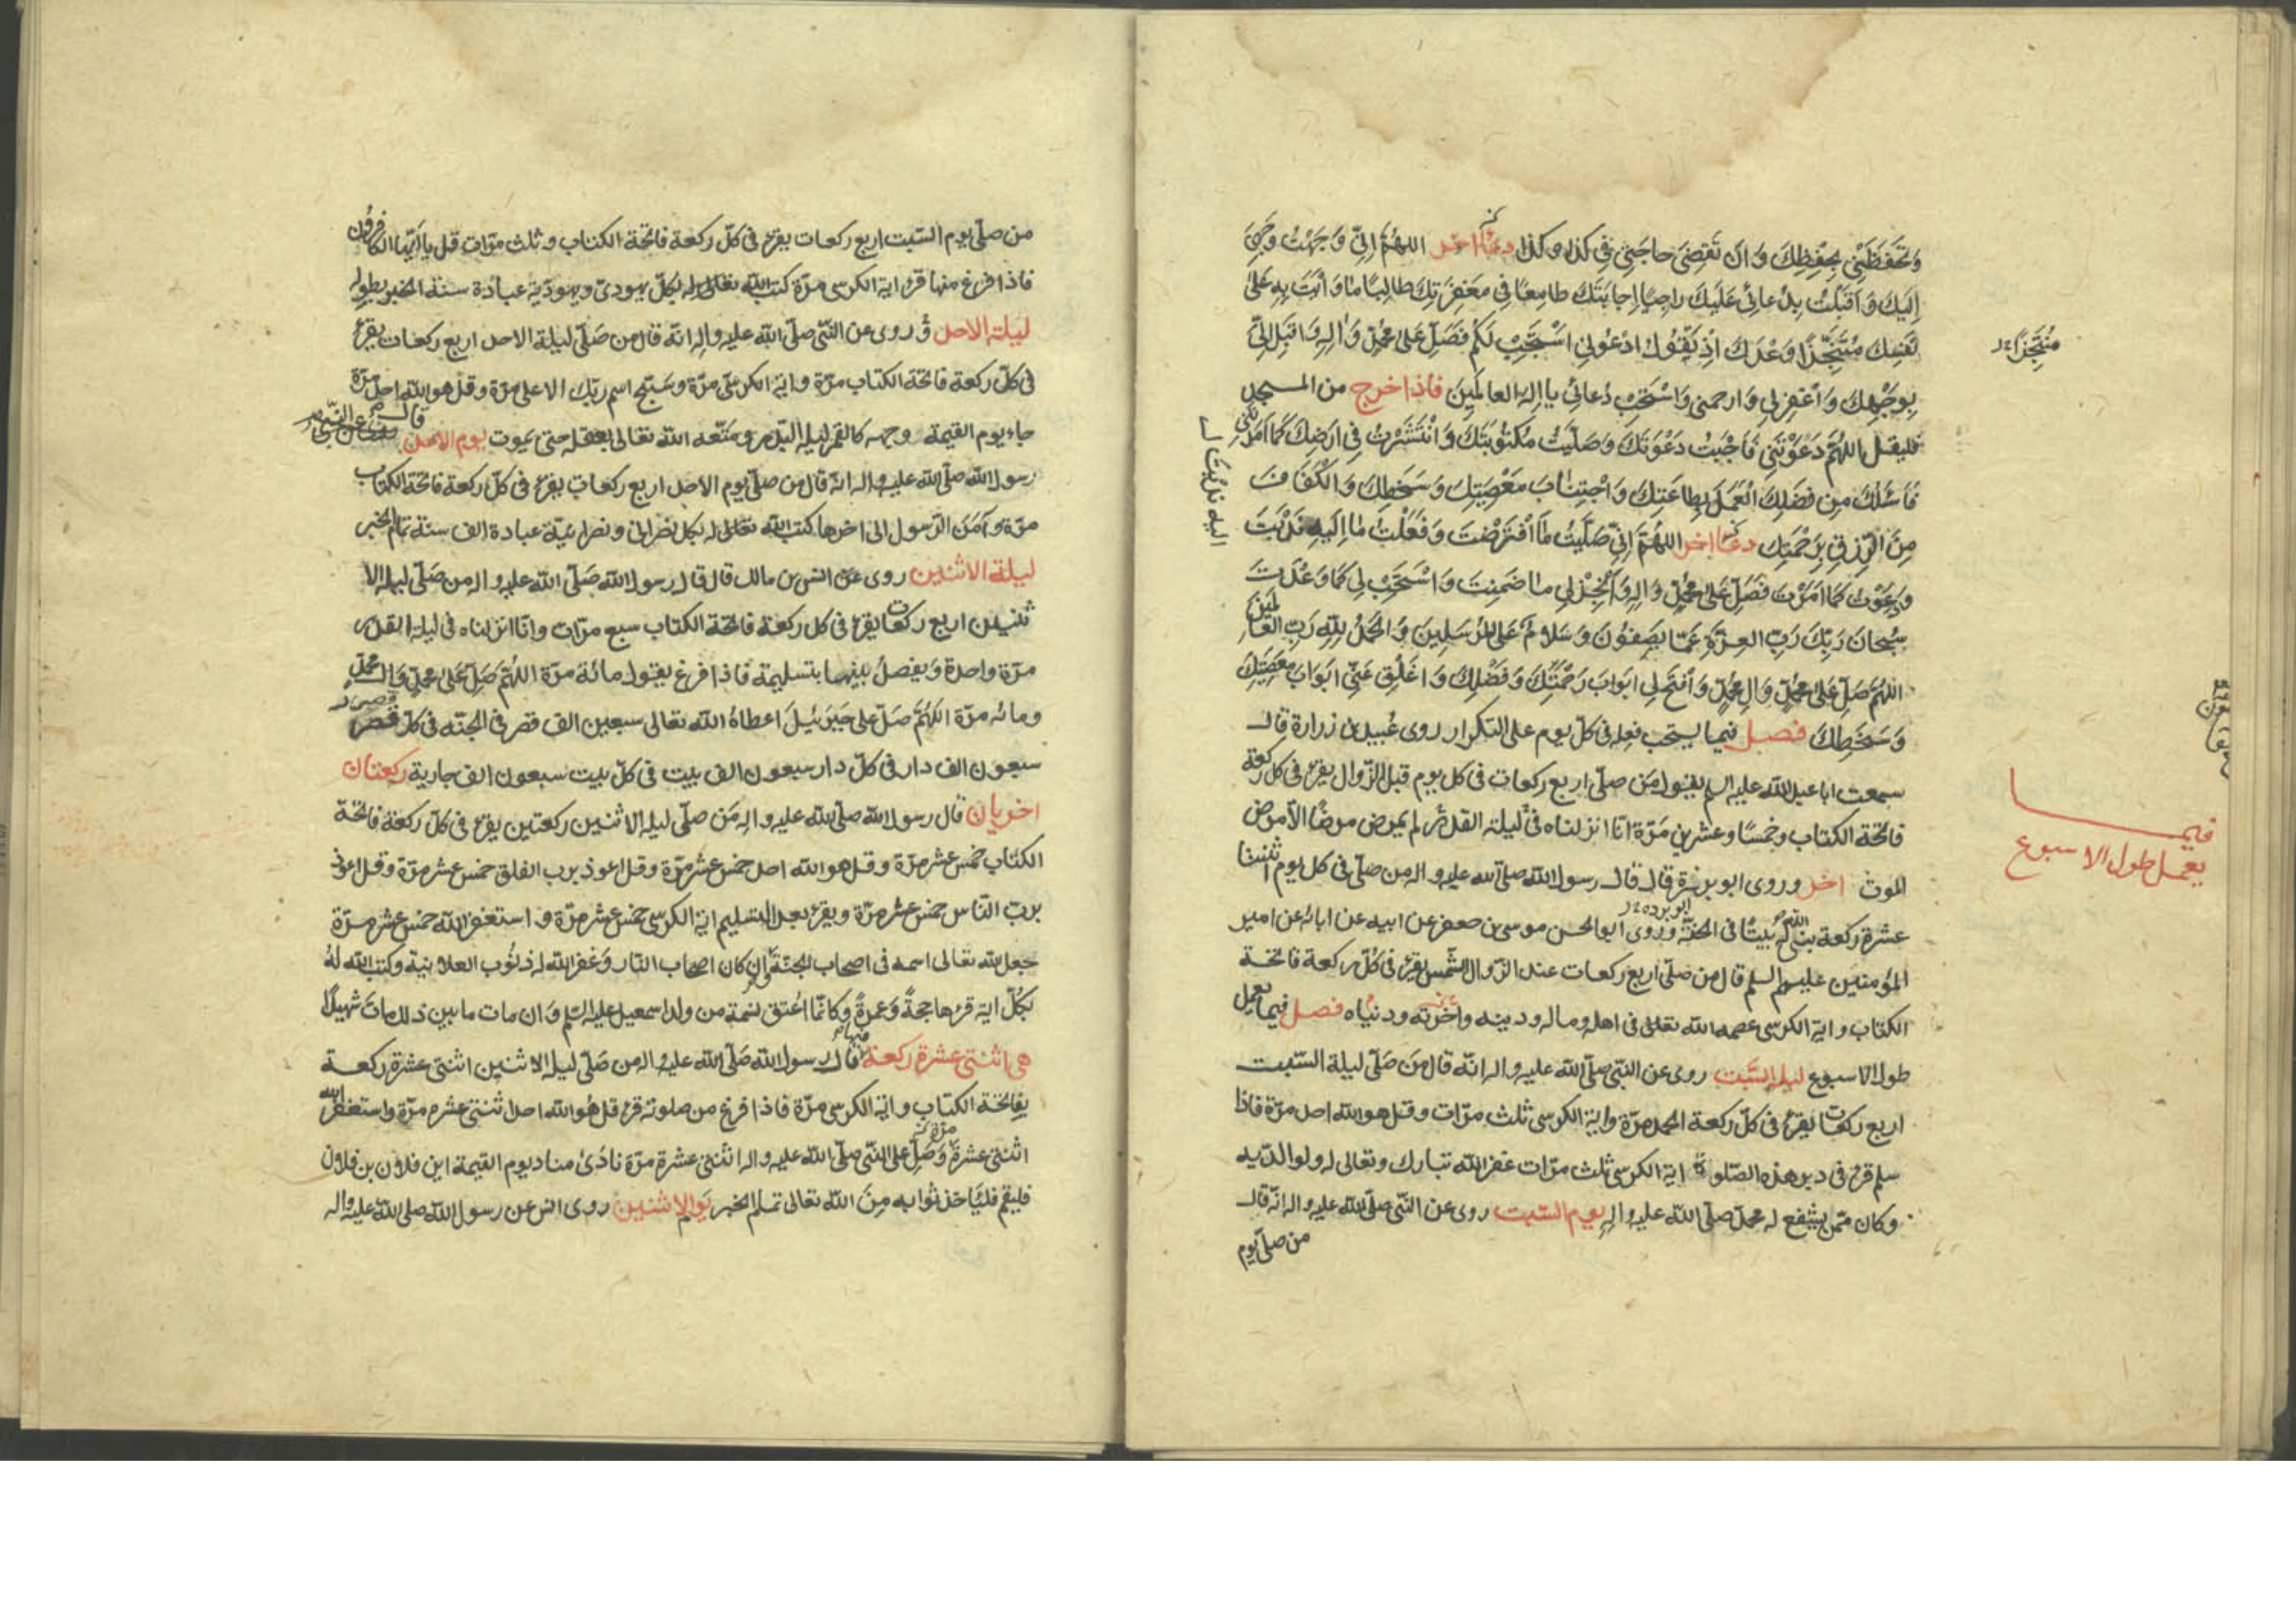 وَتَحَفَّظَنِي بِحِفْظِكَ وَاَنْ تَقْضِىَ حاجَتِي فِي كذا وكذا دعاء اخر اللهُمَّ اِنِّي وَجَّهْتُ وَجْهِيَ
اِلَيْكَ وَاَقْبَلْتُ بِدُعائِي عَلَيْكَ راجِيًا اِجابَتَكَ طامِعًا فِي مَغْفِرَتِكَ طالِبًا مٰا وَأَيْتَ بِهِ عَلىٰ
نَفْسِكَ مُتَنَجِّزًا وَعْدَكَ اِذْ تَقُولُ ادْعُونِي اَسْتَجِبْ لَكُمْ فَصَلِّ عَلى مُحَمَّدٍ وَاٰلِهِ وَاَقْبِلْ اِلَيَّ
بِوَجْهِكَ وَاغْفِرْ لِي وَارحمنى وَاسْتَجِبْ دُعائِي يا اِلٰهَ العالَمِينَ فاذا خرج من المسجد
فليقل اللهُمَّ دَعَوْتَنِي فَاَجَبْتُ دَعْوَتَكَ وَصَلَّيْتُ مَكْتُوبَتَكَ وَانْتَشَرْتُ فِي اَرْضِكَ كَمٰا اَمَرْتَنِي
فَاَسْئَلُكَ مِن فَضْلِكَ الْعَمَلَ بِطاعَتِكَ وَاجْتِنٰابَ مَعْصِيَتِكَ وَسَخَطِكَ وَالْكَفَافَ
مِنَ الرِّزقِ بِرَحْمَتِكِ دعاء اخر اللهُمَّ اِنِّي صَلَّيْتُ مٰا افْتَرَضْتَ وَفَعَلْتُ مٰا اِلَيهِ نَدَبْتَ
وَدَعَوْتُ كَمٰا اَمَرْتَ فَصَلِّ عَلىٰ مُحَمَّدٍ وَاٰلِهِ وَاَنْجِزْ لِي مٰا ضَمِنْتَ وَاسْتَجِبْ لِي كَمٰا وَعَدْتَ
سُبحانَ رَبِّكَ رَبِّ العِزَّةِ عَمّا يَصِفُونَ وَسَلامٌ عَلَى المُرْسَلِينَ وَالحَمْدُ لِلّٰهِ رَبِّ العٰالَمِينَ
اللهُمَّ صَلِّ عَلىٰ مُحَمَّدٍ وَاٰلِ مُحَمَّدٍ وَافْتَحْ لِي اَبْوابَ رَحْمَتِكَ وَفَضْلِكَ وَاغْلِقْ عَنِّي اَبْوَابَ مَعْصِيَتِكَ
وَسَخَطِكَ فصل فيما يستحب فعله فى كلّ يوم على التكرار روى عُبيد بن زرارة قال
سمعت ابا عبد الله عليه السلم يقول مَن صلّى اربع ركعات فى كل يوم قبل الزّوال يقرء فى كل ركعة
فاتحة الكتاب وخمسًا وعشرين مَرّة انّا انزلناه فى ليلة القدر لم يمرض مرضًا الّا مرض
الموت اخر وروى ابو برزة قال قال رسول الله صلّى الله عليه واله من صلّى فى كل يوم اثنتا
عشرة ركعة بنى الله له بَيتًا فى الجنّة وروى ابو الحسن موسى بن جعفر عن ابيه عن ابائه عن امير
المؤمنين عليهم السلم قال من صلّى اربع ركعات عند الزّوال الشّمس يقرء فى كُلّ ركعة فاتحة
الكتاب واية الكرسى عصمه الله تعالى فى اهله وماله ودينه واخرته ودنياه فصل فيما يعمل
طول الاسبوع ليلة السّبت روى عن النبّى صلّى الله عليه واله انّه قال مَن صَلّى ليلة السّبت
اربع ركعات يقرء فى كلّ ركعة الحمد مرّة واية الكرسى ثلث مرّات وقل هو الله احد مرّة فاذا
سلم قرء فى دبر هذه الصّلوة اية الكرسى ثلث مرّات غفر الله تبارك وتعالى له ولوالديه
وكان ممّن يشفع له محمّد صلّى الله عليه واله يوم السّبت روى عن النّبى صلّى الله عليه واله انّه قال
من صلّى يوم
مُنْتَجِزًا
اليه نَدَبْتَنى
ابو برده
فيما
يعمل طول الاسبوع
من صلّى يوم السّبت اربع ركعات يقرء فى كلّ ركعة فاتحة الكتاب وثلث مرّات قل يا ايّها الكافرون
فاذا فرغ منها قرء اية الكرسى مرّة كتب الله تعالى له بكلّ يهودىّ ويهوديّة عبادة سنة الخبر بطوله
ليلة الاحد وروى عن النّبّى صلّى الله عليه واله انّه قال من صَلّى ليلة الاحد اربع ركعات يقرء
فى كلّ ركعة فاتحة الكتاب مرّة واية الكرسىّ مرّة وسَبّح اسم ربّك الاعلى مرّة وقل هو الله احد مرّة
جاء يوم القيمة وجهه كالقمر ليلة البَدر ومَتّعه الله تعالى بعقله حتى يموت يوم الاحد قال
رسول الله صلّى الله عليه واله انّه قال من صلّى يوم الاحد اربع ركعات يقرء فى كلّ ركعة فاتحة الكتاب
مرّة وآمَنَ الرّسول الى اخرها كتب الله تعالى له بكل نصرانى ونصرانيّة عبادة الف سنة تمام الخبر
ليلة الاثنين روى عن انس بن مالك قال قال رسول الله صَلّى الله عليه واله من صَلّى ليلة الا
ثنين اربع ركعات يقرء فى كل ركعة فاتحة الكتاب سبع مرّات وانّا انزلناه فى ليلة القدر
مرّة واحدة وَيفصلُ بينهما بتسليمة فاذا فرغ يقول مائة مرّة اللهُمّ صَلّ عَلى محمّدٍ وَال محمّدٍ
ومائه مرّة اللهُمَّ صَلّ على جَبرَئيلَ اعطاهُ الله تعالى سبعين الف قصر فى الجنّه فى كلّ قصر
سبعون الف دار فى كلّ دار سبعون الف بيت فى كلّ بيت سبعون الف جارية ركعتان
اخريان قال رسول الله صلّى الله عليه واله مَن صلّى ليلة الاثنين ركعتين يقرء فى كلّ ركعة فاتحة
الكتاب خمس عشر مرّة وقل هو الله احد خمس عشر مرّة وقل اعوذ برب الفلق خمس عشر مرّة وقل اعوذ
بربّ النّاس خمس عشر مرّة ويقرء بعد التسليم اية الكرسى خمس عشر مرّة واستغفر الله خمس عشر مرّة
جعل الله تعالى اسمه فى اصحاب الجنّة وان كان اصحاب النّار وَغفر الله له ذنُوب العلانية وكتب الله لهُ
بكُلّ اية قرءها حجةً وَعمرةً وكانّما اعُتق نسمة من ولد اسمعيل عليه السّلم وَان مات ما بين ذلك ماتَ شهيدًا
هى اثنتى عشرة ركعة قال رسول الله صَلّى الله عليه واله من صَلّى ليلة الاثنين اثنتى عشرة ركعة
بفاتحة الكتاب واية الكرسى مرّة فاذا فرغ من صلوته قرء قل هُو الله احد اثنتى عشرم مرّة واستغفر الله
اثنتى عشرة وَصَلّ على النّبّى صلّى الله عليه واله اثنتى عشرة مرّة نادى مناد يوم القيمة اين فلان بن فلان
فليقم فليَاخذ ثوابه مِنَ الله تعالى تمام الخبر يَوم الاثنين روى انس عن رسول الله صلى الله عليه واله